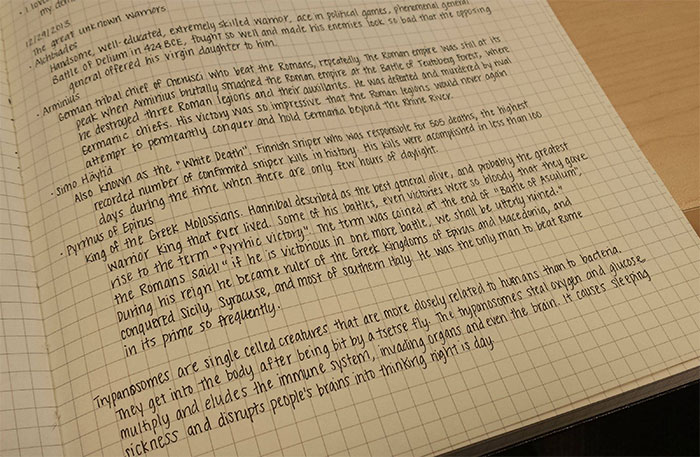 my
12/24/2013
The great unknown warriors
· Alcibiades
Handsome, well-educated, extremely skilled warrior, ace in political games, phenomenal general
Battle of Delium in 424 BCE, fought so well and made his enemies look so bad that the opposing
general offered his virgin daughter to him.
· Arminius
German tribal chief of Cherusci who beat the Romans, repeatedly. The Roman empire was still at its
peak when Arminius brutally smashed the Roman empire at the Battle of Teutoberg forest, where
he destroyed three Roman legions and their auxiliaries. He was defeated and murdered by rival
Germanic chiefs. His victory was so impressive that the Roman legions would never again
attempt to permeantly conquer and hold Germania beyond the Rhine River.
· Simo Häyhä
Also known as the "White Death". Finnish sniper who was responsible for 505 deaths, the highest
recorded number of confirmed sniper kills in history. His kills were acomplished in less than 100
days during the time when there are only few hours of daylight.
· Pyrrhus of Epirus
King of the Greek Molossians. Hannibal described as the best general alive, and probably the greatest
warrior king that ever lived. Some of his battles, even victories were so bloody that they gave
rise to the term "Pyrrhic victory". The term was coined at the end of "Battle of Asculum",
the Romans said," if he is victorious in one more battle, we shall be utterly ruined."
During his reign he became ruler of the Greek Kingdoms of Epirus and Macedonia, and
conquered Sicily, Syracuse, and most of southern Italy. He was the only man to beat Rome
in its prime so frequently.
Trypanosomes are single celled creatures that are more closely related to humans than to bacteria.
They get into the body after being bit by a tsetse fly. The trypanosomes steal oxygen and glucose
multiply and eludes the immune system, invading organs and even the brain. It causes sleeping
sickness and disrupts people's brains into thinking night is day.